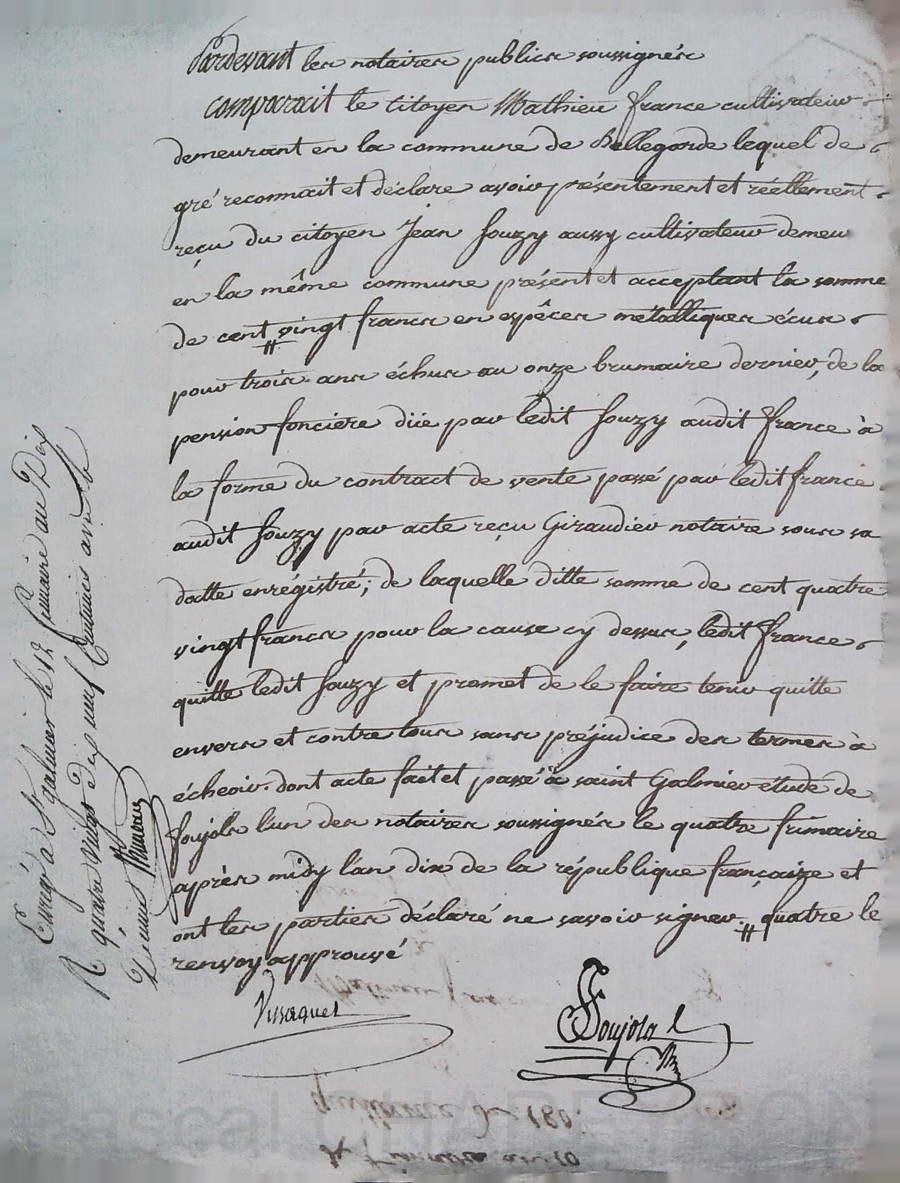 Pardevant les notaires publics soussignés
comparait le citoyen Mathieu france cultivateur
demeurant en la commune de Bellegarde lequel de
gré reconnait et déclare avoir présentement et réellement
reçu du citoyen Jean Souzy aussy cultivateur demeu
en la même commune présent et acceptant la somme
de cent # vingt francs en espêces métalliques écus
pour trois ans échus au onze brumaire dernier, de la
pension foncière düe par ledit Souzy audit france à
la forme du contract de vente passé par ledit france
audit Souzy par acte reçu Giraudier notaire sous sa
datte enrégistré; de laquelle ditte somme de cent quatre
vingt francs pour la cause cy dessus, ledit france
quitte ledit Souzy et promet de le faire tenir quitte
envers et contre tous sans préjudice des termes à
écheoir. dont acte fait et passé à saint Galmier étude de
Soujols l'un des notaires soussignés le quatre frimaire
après midy l'an dix de la république française et
ont les parties déclaré ne savoir signer. # quatre le
renvoy approuvé
Soujols
Enregé à St galmier le 12 frimaire an Dix
R quatre vingt dix neuf Centimes
quittance de 180.
4 frimaire an 10
Pascal CHABEYRON